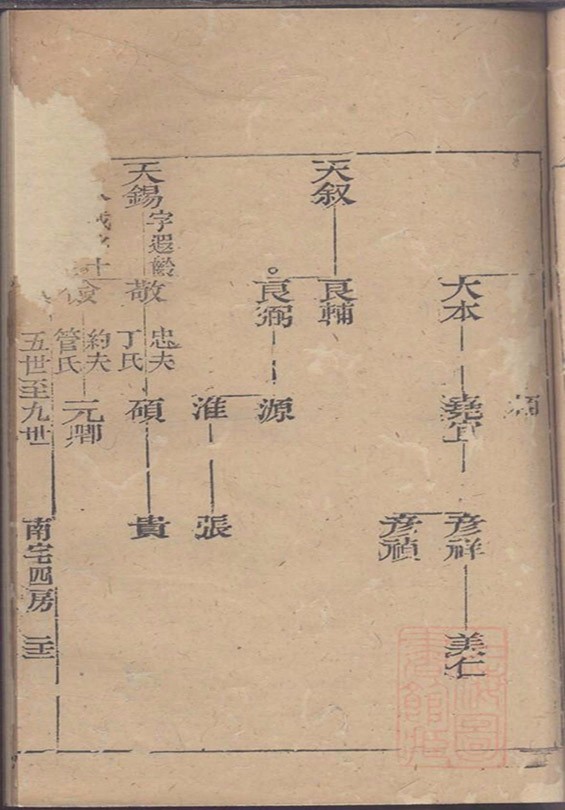 大本
堯宜
彥祥
彥禎
美仁
天叙
良輔
良弼
源
淮
張
天錫
字遐齡
敬
忠夫
丁氏
碩
貴
約夫
管氏
元卿
五世至九世
南宅四房